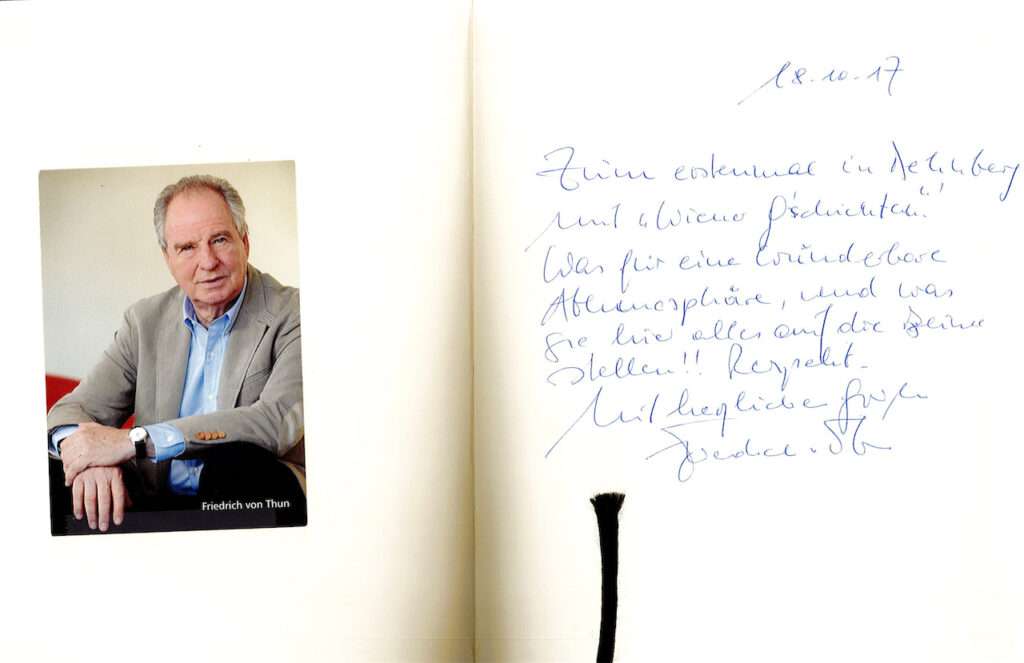 Friedrich von Thun
18.10.17
Zum erstenmal in Dehnberg
mit „Wiener G'schichten“!
Was für eine wunderbare
Athmosphäre, und was
Sie hier alles auf die Beine
stellen!! Respekt.
Mit herzlichen Grüßen